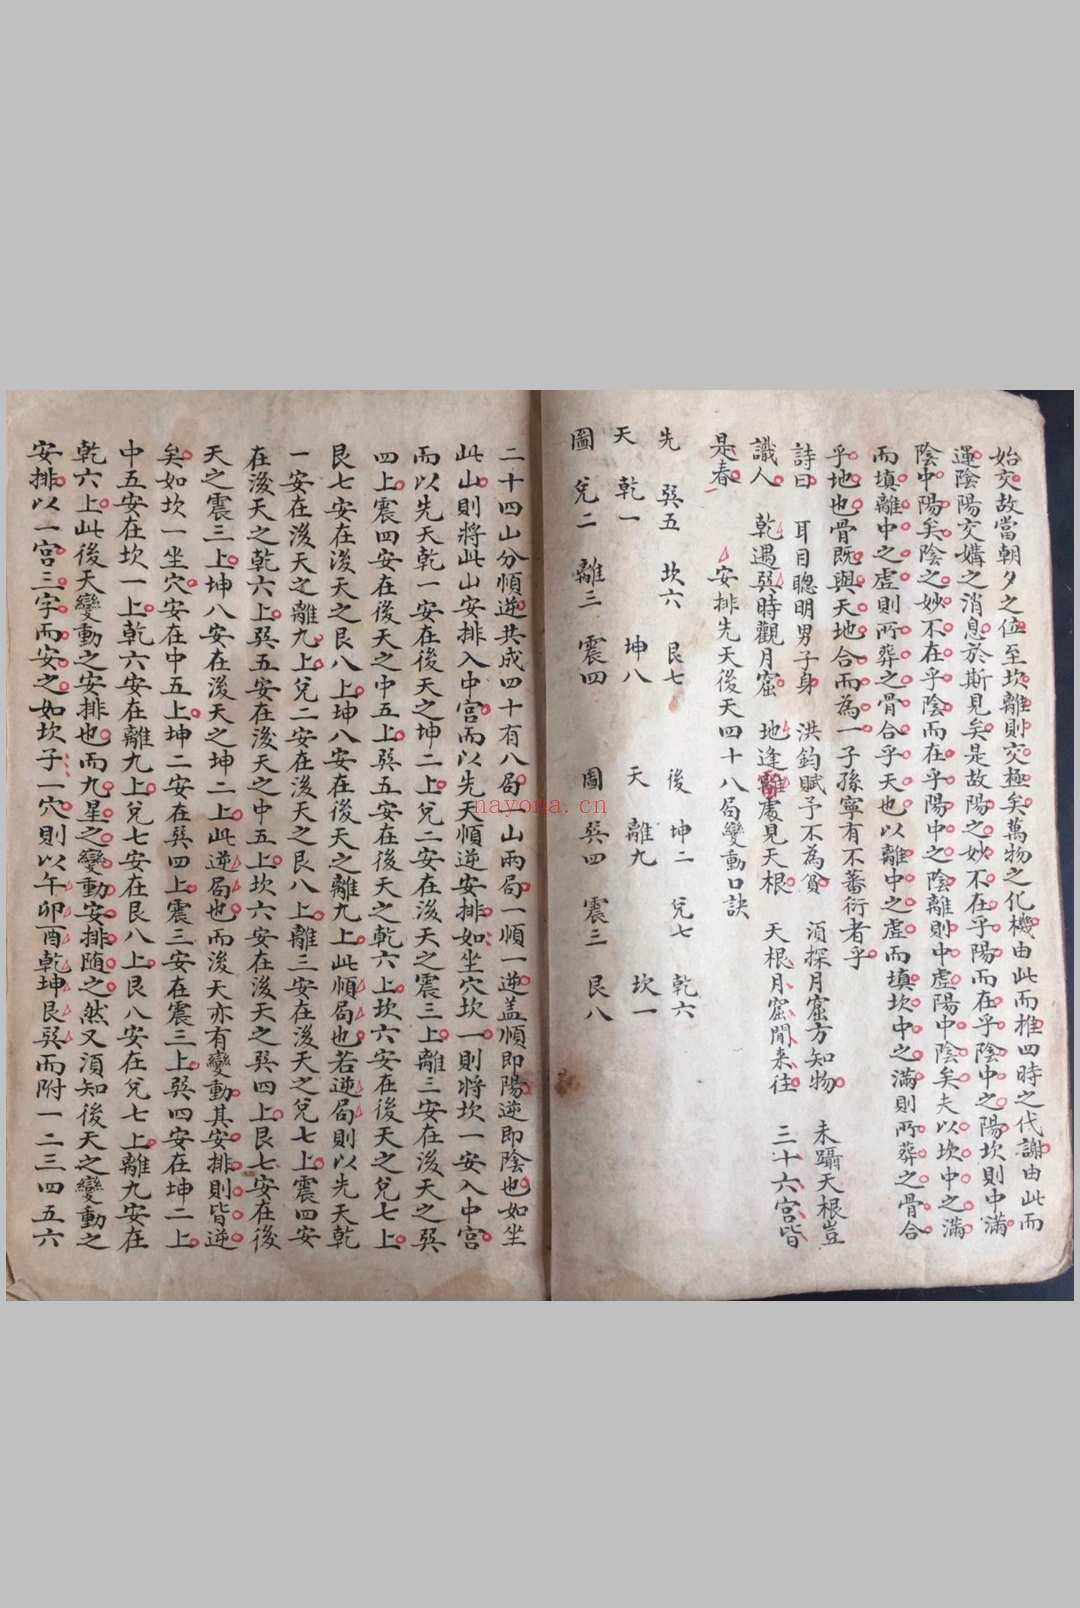 始交故當朝夕之位至坎離則交極矣萬物之化機由此而推四時之代謝由此而
運陰陽交媾之消息於斯見矣是故陽之妙不在乎陽而在乎陰中之陽坎則中滿
陰中陽矣陰之妙不在乎陰而在乎陽中之陰離則中虛陽中陰矣夫以坎中之滿
而填離中之虛則所葬之骨合乎天也以離中之虛而填坎中之滿則所葬之骨合
乎地也骨既與天地合而為一子孫寧有不蕃衍者乎
詩曰 耳目聰明男子身 洪鈞賦予不為貧 須探月窟方知物 未躡天根豈
識人 乾遇巽時觀月窟 地逢離處見天根 天根月窟閒來往 三十六宮皆
是春 安排先天後天四十八局變動口訣
先 巽五 坎六 艮七 後 坤二 兌七 乾六
天 乾一 坤八 天 離九 坎一
圖 兌二 離三 震四 圖 巽四 震三 艮八
二十四山分順逆共成四十有八局一山兩局一順一逆盖順即陽逆即陰也如坐
此山則將此山安排入中宮而以先天順逆安排如坐穴坎一則將坎一安入中宮
而以先天乾一安在後天之坤二上兌二安在後天之震三上離三安在後天之巽
四上震四安在後天之中五上巽五安在後天之乾六上坎六安在後天之兌七上
艮七安在後天之艮八上坤八安在後天之離九上此順局也若逆局則以先天乾
一安在後天之離九上兌二安在後天之艮八上離三安在後天之兌七上震四安
在後天之乾六上巽五安在後天之中五上坎六安在後天之巽四上艮七安在後
天之震三上坤八安在後天之坤二上此逆局也而後天亦有變動其安排則皆逆
矣如坎一坐穴安在中五上坤二安在巽四上震三安在震三上巽四安在坤二上
中五安在坎一上乾六安在離九上兌七安在艮八上艮八安在兌七上離九安在
乾六上此後天變動之安排也而九星之變動安排隨之然又須知後天之變動之
安排以一宮三字而安之如坎子一穴則以午卯酉乾坤艮巽而附一二三四五六
nayona.cn